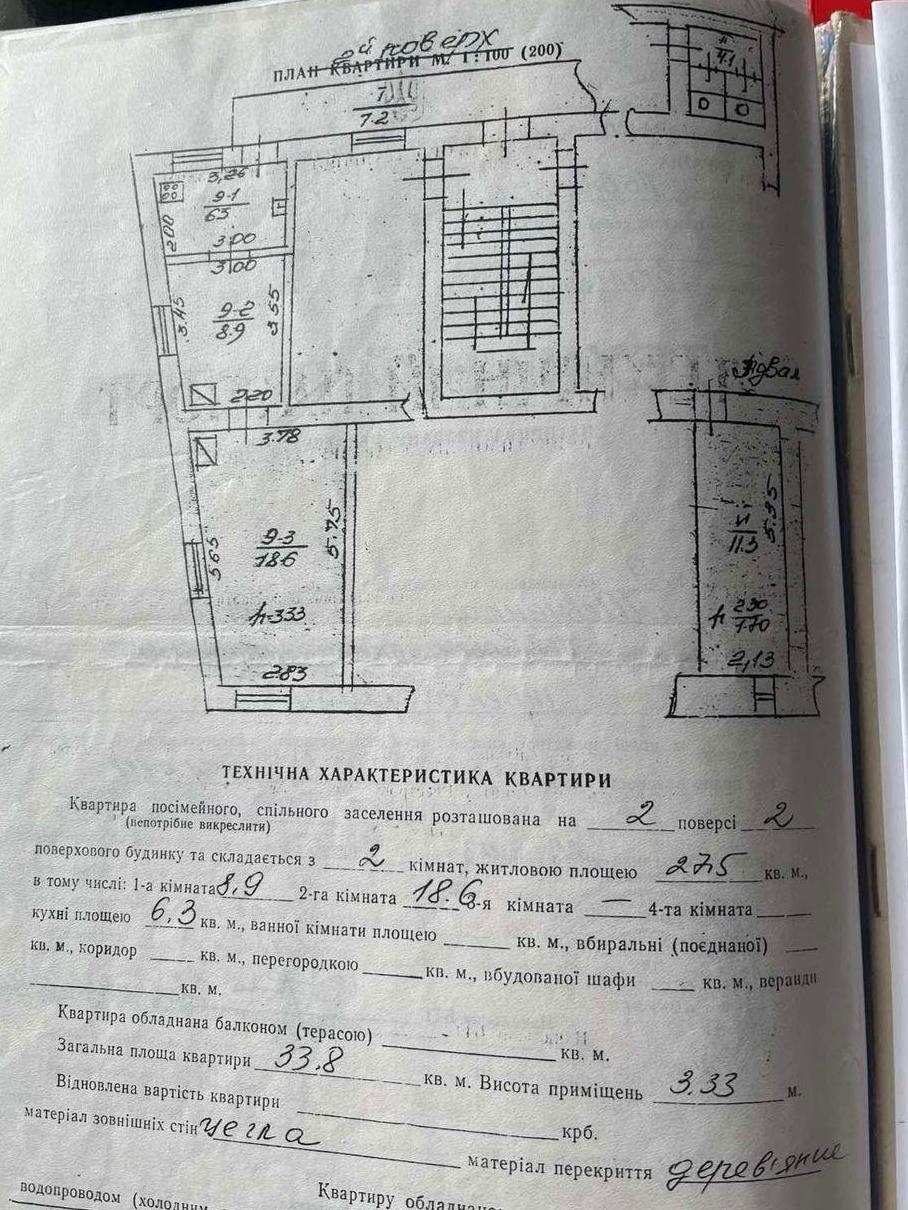 2ой поверх
ПЛАН КВАРТИРИ М. 1 : 100 (200)
7
7.2
ІІ
4.1
3,26
9-1
6.3
2.00
3.00
3.00
3.45
9-2
8.9
3.55
2.20
3.78
5.65
9-3
18.6
5.75
h-3.33
2.83
Підвал
ІІ
11.3
5.35
h 2.30
1.70
2,13
ТЕХНІЧНА ХАРАКТЕРИСТИКА КВАРТИРИ
Квартира посімейного, спільного заселення розташована на 2 поверсі 2
(непотрібне викреслити)
поверхового будинку та складається з 2 кімнат, житловою площею 27,5 кв. м.,
в тому числі: 1-а кімната 8,9 2-га кімната 18.6 3-я кімната — 4-та кімната
кухні площею 6,3 кв. м., ванної кімнати площею кв. м., вбиральні (поєднаної)
кв. м., коридор кв. м., перегородкою кв. м., вбудованої шафи кв. м., веранди
кв. м.
Квартира обладнана балконом (терасою) кв. м.
Загальна площа квартири 33,8 кв. м. Висота приміщень 3.33 м.
Відновлена вартість квартири крб.
матеріал зовнішніх стін цегла матеріал перекриття дерев'янне
Квартиру обладнано
водопроводом (холодним